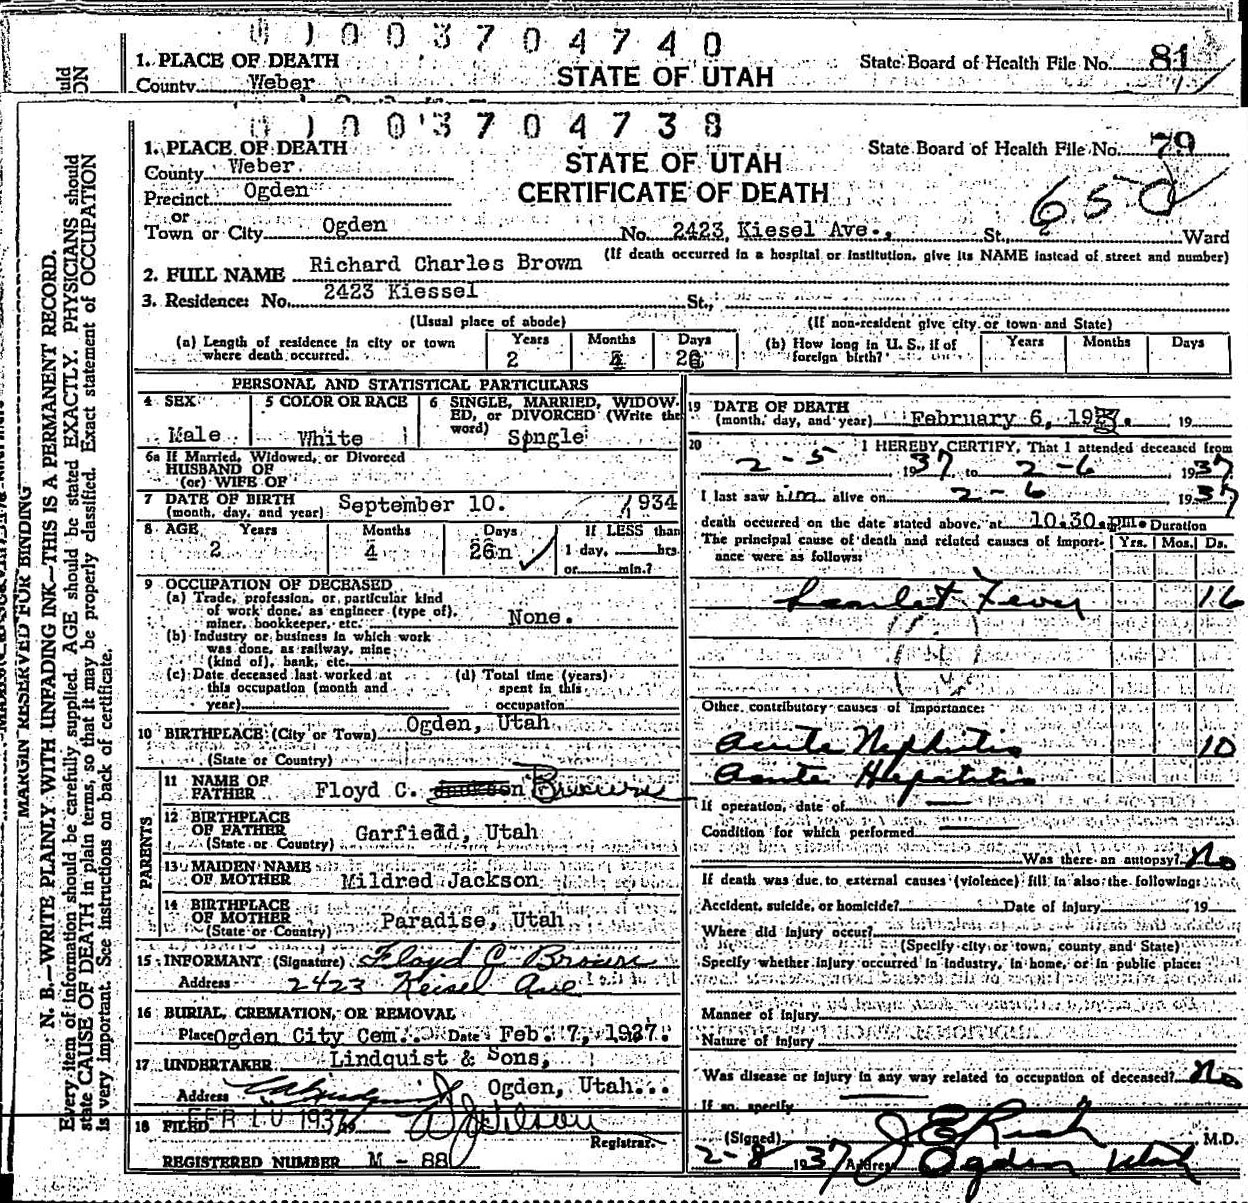 0100370 4740
1. PLACE OF DEATH
County Weber
STATE OF UTAH
State Board of Health File No. 81
010037 04738
1. PLACE OF DEATH
County Weber.
Precinct Ogden
or
Town or City Ogden
STATE OF UTAH
CERTIFICATE OF DEATH
State Board of Health File No. 79
650
No. 2423, Kiesel Ave., St., Ward
(If death occurred in a hospital or institution, give its NAME instead of street and number)
2. FULL NAME Richard Charles Brown
3. Residence: No. 2423 Kiessel St.,
(Usual place of abode)
(If non-resident give city or town and State)
(a) Length of residence in city or town where death occurred. Years 2 Months 4 Days 26
(b) How long in U. S., if of foreign birth? Years Months Days
PERSONAL AND STATISTICAL PARTICULARS
4 SEX Male
5 COLOR OR RACE White
6 SINGLE, MARRIED, WIDOW-
ED, or DIVORCED (Write the
word) Songle
6a If Married, Widowed, or Divorced
HUSBAND OF
(or) WIFE OF
7 DATE OF BIRTH
(month, day, and year) September 10. 1934
8 AGE Years 2 Months 4 Days 26n
If LESS than
1 day, hrs
or min.?
9 OCCUPATION OF DECEASED
(a) Trade, profession, or particular kind
of work done, as engineer (type of),
miner, bookkeeper, etc. None.
(b) Industry or business in which work
was done, as railway, mine
(kind of), bank, etc.
(c) Date deceased last worked at
this occupation (month and
year)
(d) Total time (years)
spent in this
occupation
10 BIRTHPLACE (City or Town) Ogden, Utah
(State or Country)
PARENTS
11 NAME OF
FATHER Floyd C. Jackson Brown
12 BIRTHPLACE
OF FATHER Garfield, Utah
(State or Country)
13 MAIDEN NAME
OF MOTHER Mildred Jackson
14 BIRTHPLACE
OF MOTHER Paradise, Utah
(State or Country)
15 INFORMANT (Signature) Floyd C Brown
Address 2423 Keisel Ave
16 BURIAL, CREMATION, OR REMOVAL
Place Ogden City Cem. Date Feb. 7, 1937.
17 UNDERTAKER Lindquist & Sons,
Address Ogden, Utah...
18 FILED FEB 10 1937 19
Registrar.
REGISTERED NUMBER M - 88
19 DATE OF DEATH
(month, day, and year) February 6, 1937. 19
20 I HEREBY CERTIFY, That I attended deceased from
2-5 1937 to 2-6 1937
I last saw him alive on 2-6 1937
death occurred on the date stated above, at 10.30.pm. Duration
The principal cause of death and related causes of import-
ance were as follows: Yrs. Mos. Ds.
Scarlet Fever 16
Other contributory causes of importance:
Acute Nephritis 10
Acute Hepatitis
If operation, date of
Condition for which performed
Was there an autopsy? No
If death was due to external causes (violence) fill in also the following:
Accident, suicide, or homicide? Date of injury 19
Where did injury occur?
(Specify city or town, county and State)
Specify whether injury occurred in industry, in home, or in public place:
Manner of injury
Nature of injury
Was disease or injury in any way related to occupation of deceased? No
If so, specify
(Signed) J E Rich M.D.
2-8 1937 Address Ogden Utah
MARGIN RESERVED FOR BINDING
N. B.—WRITE PLAINLY WITH UNFADING INK—THIS IS A PERMANENT RECORD.
Every item of information should be carefully supplied. AGE should be stated EXACTLY. PHYSICIANS should
state CAUSE OF DEATH in plain terms, so that it may be properly classified. Exact statement of OCCUPATION
is very important. See instructions on back of certificate.
uld
ON